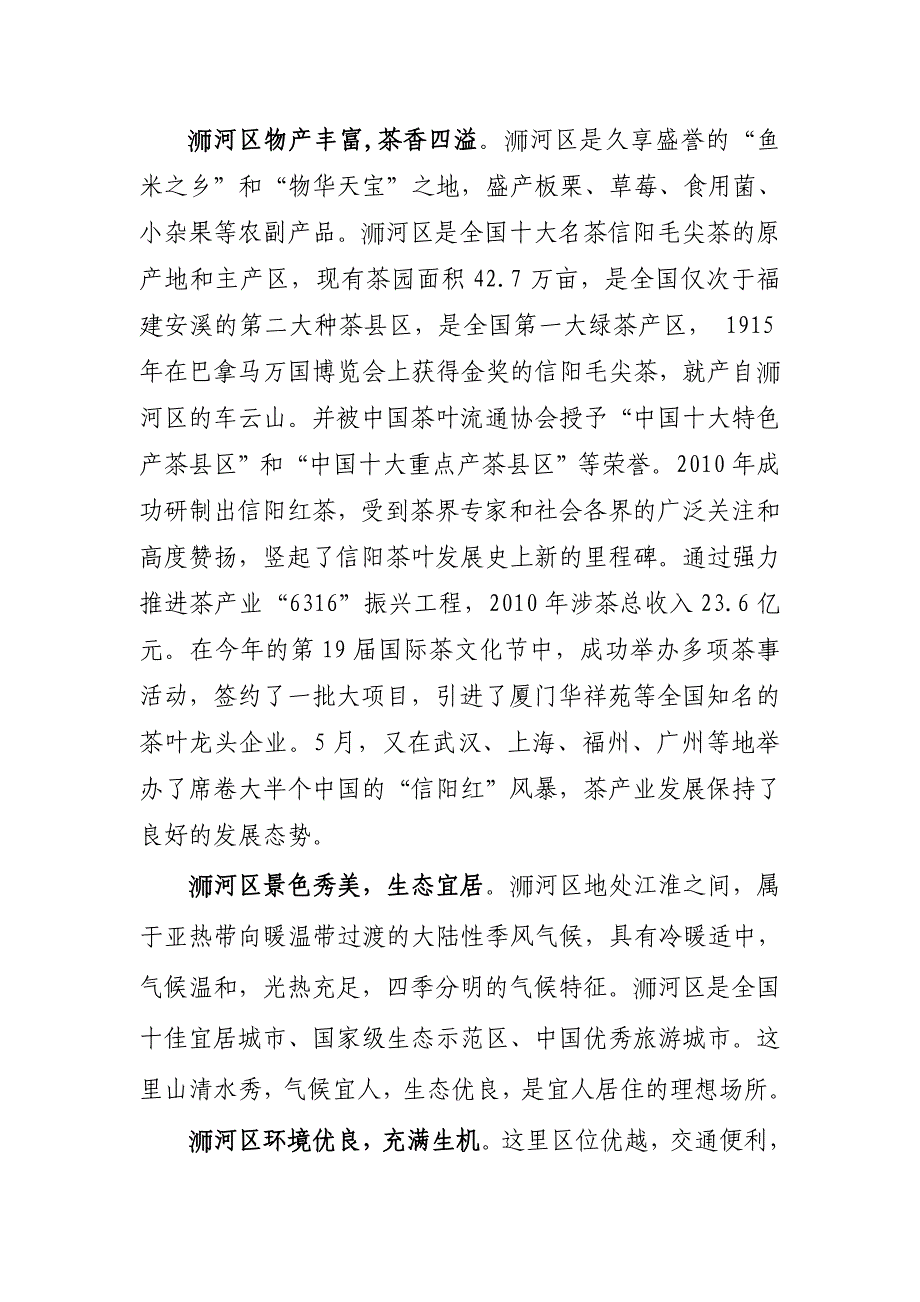 浉河区物产丰富,茶香四溢。浉河区是久享盛誉的“鱼
米之乡”和“物华天宝”之地，盛产板栗、草莓、食用菌、
小杂果等农副产品。浉河区是全国十大名茶信阳毛尖茶的原
产地和主产区，现有茶园面积 42.7 万亩，是全国仅次于福
建安溪的第二大种茶县区，是全国第一大绿茶产区， 1915
年在巴拿马万国博览会上获得金奖的信阳毛尖茶，就产自浉
河区的车云山。并被中国茶叶流通协会授予“中国十大特色
产茶县区”和“中国十大重点产茶县区”等荣誉。2010 年成
功研制出信阳红茶，受到茶界专家和社会各界的广泛关注和
高度赞扬，竖起了信阳茶叶发展史上新的里程碑。通过强力
推进茶产业“6316”振兴工程，2010 年涉茶总收入 23.6 亿
元。在今年的第 19 届国际茶文化节中，成功举办多项茶事
活动，签约了一批大项目，引进了厦门华祥苑等全国知名的
茶叶龙头企业。5 月，又在武汉、上海、福州、广州等地举
办了席卷大半个中国的“信阳红”风暴，茶产业发展保持了
良好的发展态势。
浉河区景色秀美，生态宜居。浉河区地处江淮之间，属
于亚热带向暖温带过渡的大陆性季风气候，具有冷暖适中，
气候温和，光热充足，四季分明的气候特征。浉河区是全国
十佳宜居城市、国家级生态示范区、中国优秀旅游城市。这
里山清水秀，气候宜人，生态优良，是宜人居住的理想场所。
浉河区环境优良，充满生机。这里区位优越，交通便利，